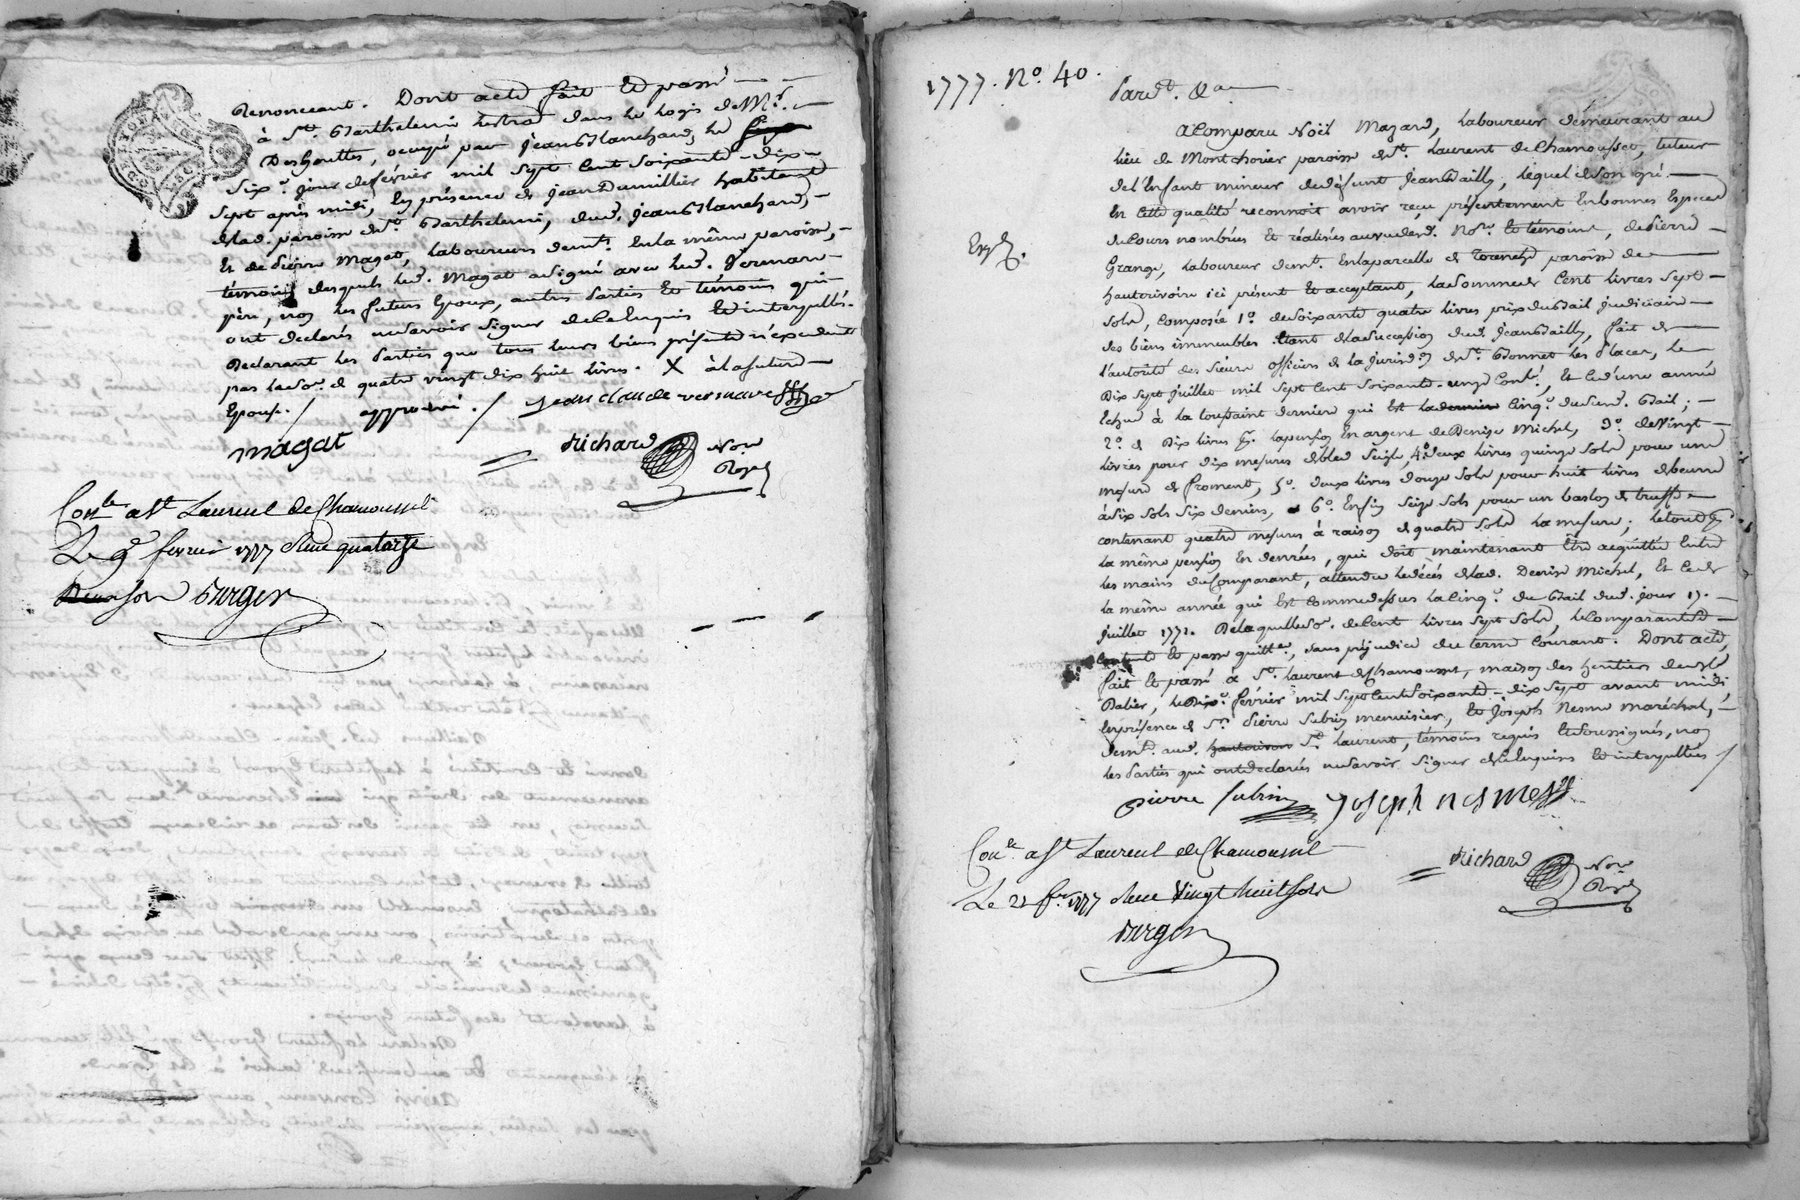 Renonceant. Dont acte fait et passé
à St. Barthelemi Lestra dans le logis de Mr.
Deshouttes, occupé par Jean Blanchard, le
six.e jour de février mil sept cent soixante-dix-
sept après midi, En présence de Jean Dumillier habitant
de lad. paroisse de St. Barthelemi, dud. Jean Blanchard,
Et de Pierre Magat, Laboureur demt. En la même paroisse,
témoins desquels led. Magat a signé avec led.
père, non les futurs Epoux, autres Parties Et témoins qui
ont declarés ne savoir signer de ce Enquis Et interpellés.
Declarant les Parties que tous leurs biens présents n'excedent
pas la so.e de quatre vingt dix huit livres. X à la future
Epouse. / approuvé. / jean claude
magat = Richard Nore Royal
Conlé a St Laurent de Chamousset
Le 9 fevrier 1777 Reçu quatorze
sols Burger
1777. No. 40.
Pardt. &a
Exp.
A Comparu Noël Mazard, laboureur demeurant au
lieu de Montchorier paroisse de St. Laurent de Chamousset, tuteur
de l'Enfant mineur de défunt Jean Bailly, lequel de son gré
En cette qualité reconnoit avoir reçu présentement En bonnes Especes
de Cours nombrées Et réalisées au vu desd. Nore. Et témoins, de Pierre
Grange, laboureur demt. En la parcelle de paroisse de
hauterivoire ici présent Et acceptant, la Somme de Cent livres Sept
Sols, Composée 1o. de Soixante quatre livres prix du Bail judiciaire
des biens immeubles Etant de la Succession dud. Jean Bailly, fait de
l'autorité des Sieurs officiers de la Jurisdon. de St. Bonnet les Places, le
Dix Sept Juillet mil Sept Cent Soixante-onze Conlé, Et ce d'une année
Echue à la toussaint derniere qui Est la derniere Cinq.e du Susd. Bail;
2o. de Dix livres pr. la pension En argent de Denise Michel, 3o. de Vingt
livres pour dix mesures de bled Seigle, 4o. deux livres quinze Sols pour une
mesure de froment, 5o. deux livres douze Sols pour huit livres de beurre
à Six Sols Six deniers, 6o. Enfin Seize Sols pour un bastos de truffe
contenant quatre mesures à raison de quatre Sols la mesure; le tout pr.
la même pension En denrées, qui doit maintenant être acquittée Entre
les mains du Comparant, attendu le décés de lad. Denise Michel, Et ce de
la même année qui Est Comme dessus la Cinq.e du Bail dud. jour 17.
Juillet 1771. De laquelle So.e de Cent livres Sept Sols, le Comparant Se
contente Et passe quittce, sans préjudice du terme Courant. Dont acte,
fait Et passé à St. Laurent de Chamousset, maison des heritiers de
Balier, le Dix.e février mil Sept Cent Soixante-dix Sept avant midi,
En présence de Sr. Pierre Subrin menuisier, Et Joseph Nesme maréchal,
demt. aud. St. Laurent, témoins requis Et Soussignés, non
les Parties qui ont declarées ne Savoir Signer de ce Enquises Et interpellées /
pierre subrin joseph nesme
= Richard Nore Royal
Conlé a St Laurent de Chamousset
Le 21 fer. 1777 Reçu Vingt huit sols
Burger